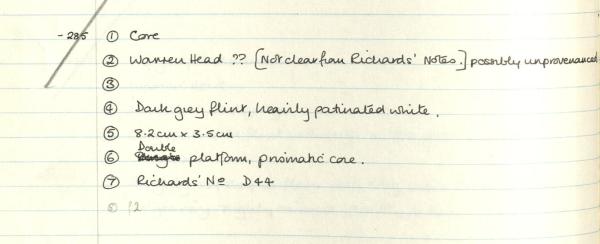 -285 ① Core
② Warren Head ?? [Not clear from Richards' Notes.] possibly unprovenanced
③
④ Dark grey flint, heavily patinated white.
⑤ 8.2cm x 3.5cm
Double
⑥ platform, prismatic core.
⑦ Richards' No D44
12